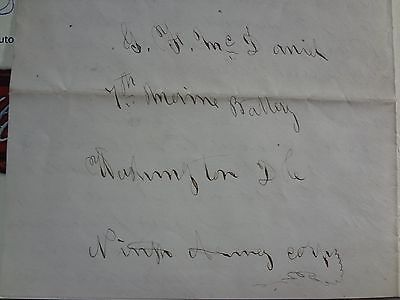 uto
G. F. McDaniel
7th Maine Battery
Washington D C
Ninth Army Corps